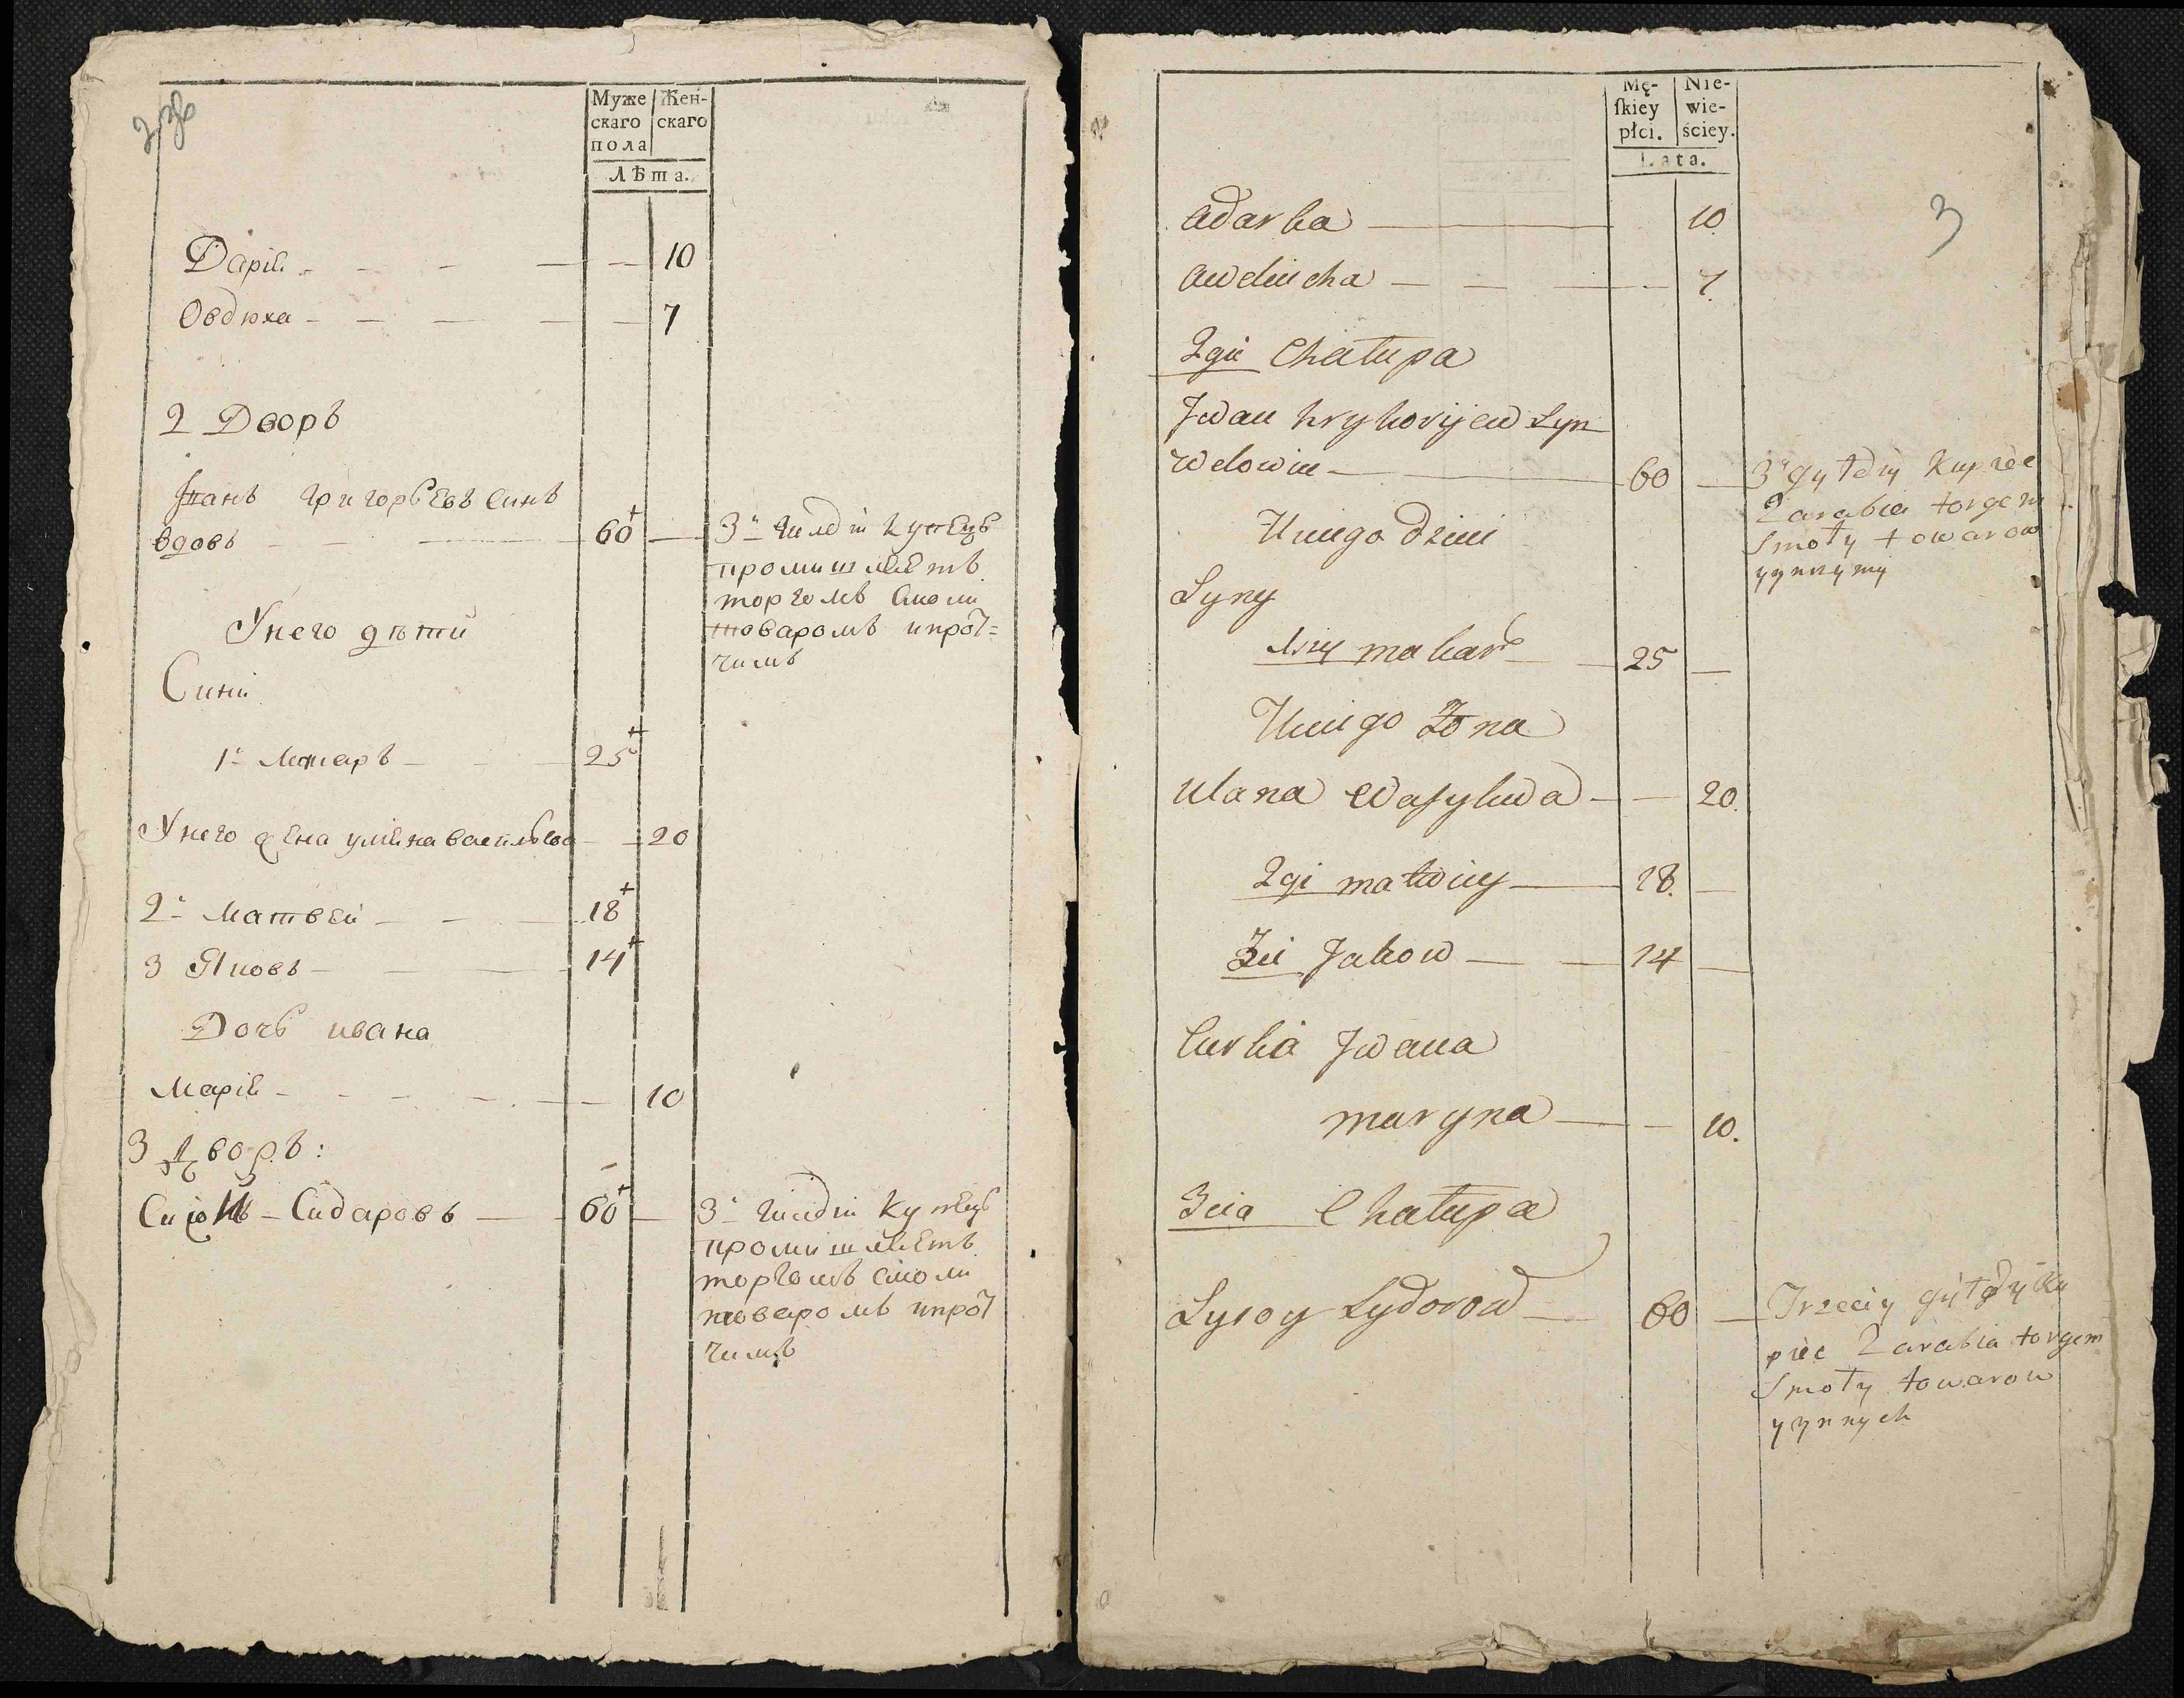 Муже
скаго
пола
Жен-
скаго
Лѣта.
Дарія 10
Овдюха 7
2 Дворъ
Іванъ григорьевъ синъ
вдовъ 60 3й гилдіи купецъ
промишляетъ
торгомъ смоли
товаромъ ипрот=
чимъ
Унего дѣти
Сини
1й Макаръ 25
Унего жена уляна васильева 20
2й Матвей 18
3 Яковъ 14
Дочь ивана
Марія 10
3 Дворъ:
Сидаровъ 60 3й гилдіи купецъ
промишляетъ
торгомъ смоли
товаромъ ипрот
чимъ
Mę-
skiey
płci.
Nie-
wie-
ściey.
Lata.
3
Odarka 10
Awdiucha 7.
2gia Chałupa
Jwan hryhoryjew Syn
Wdowiec 60 3y gyłdy kupiec
Zarabia torgem
smoły towarow
yynnymy
Uniego dzieci
Syny
1szy makar 25
Uniego Żona
Ulana Wasylewa 20.
2gi matwiey 18.
3ci Jakow 14
Curka Jwana
maryna 10.
3cia Chałupa
Sysoy Sydorow 60 Trzeciy gyłdy ku
piec Zarabia torgem
smoły towarow
yynnych